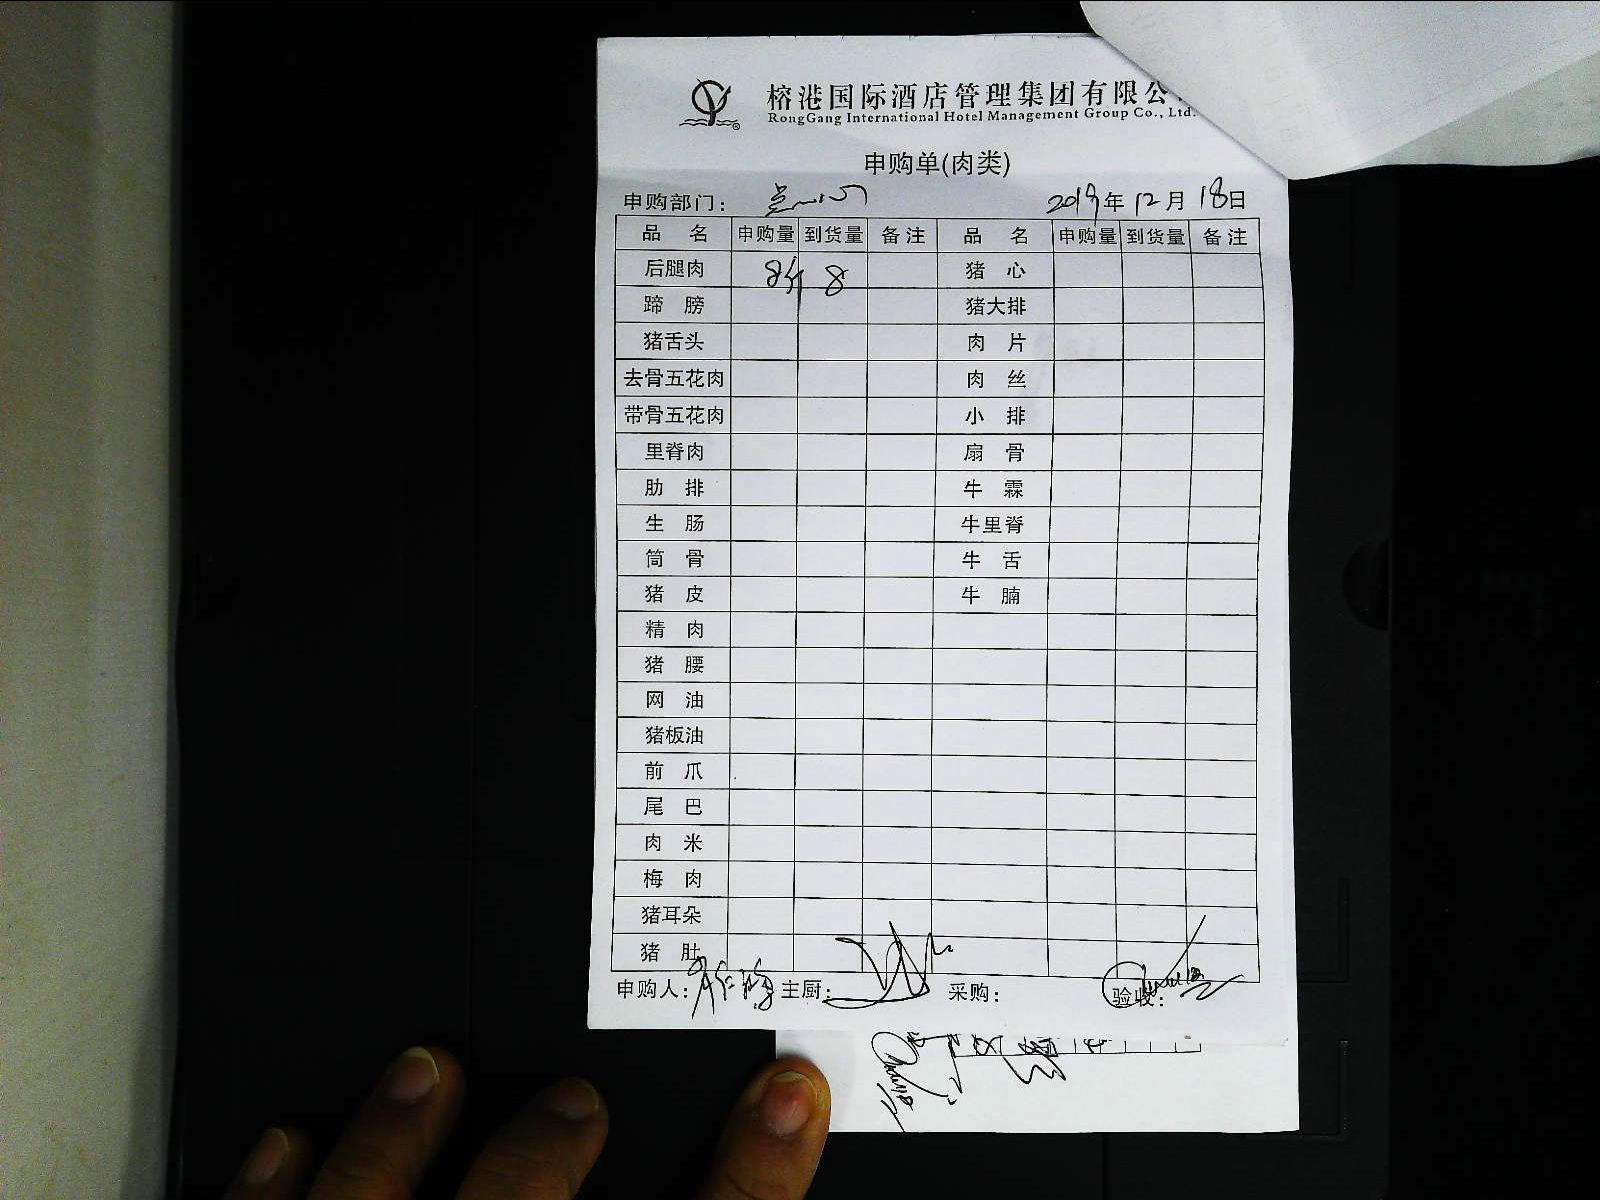 榕港国际酒店管理集团有限公
RongGang International Hotel Management Group Co., Ltd.
申购单(肉类)
申购部门： 点心 2019年12月18日
品 名 申购量 到货量 备注 品 名 申购量 到货量 备注
后腿肉 8斤 8 猪 心
蹄 膀 猪大排
猪舌头 肉 片
去骨五花肉 肉 丝
带骨五花肉 小 排
里脊肉 扇 骨
肋 排 牛 霖
生 肠 牛里脊
筒 骨 牛 舌
猪 皮 牛 腩
精 肉
猪 腰
网 油
猪板油
前 爪
尾 巴
肉 米
梅 肉
猪耳朵
猪 肚
申购人： 主厨： 采购： 验收：